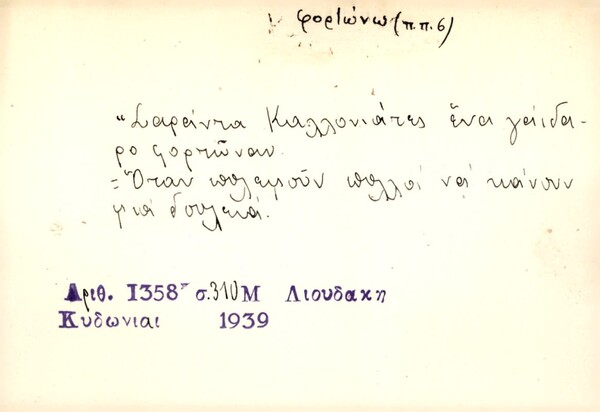 φορτώνω (π.π.6)
"Σαράντα Καλλονιάτες ἕνα γάιδα-
ρο φορτῶναν.
=Ὅταν πολεμοῦν πολλοί νά κάνουν
μιά δουλειά.
Αριθ. 1358 σ.310 Μ Λιουδακη
Κυδωνιαι 1939